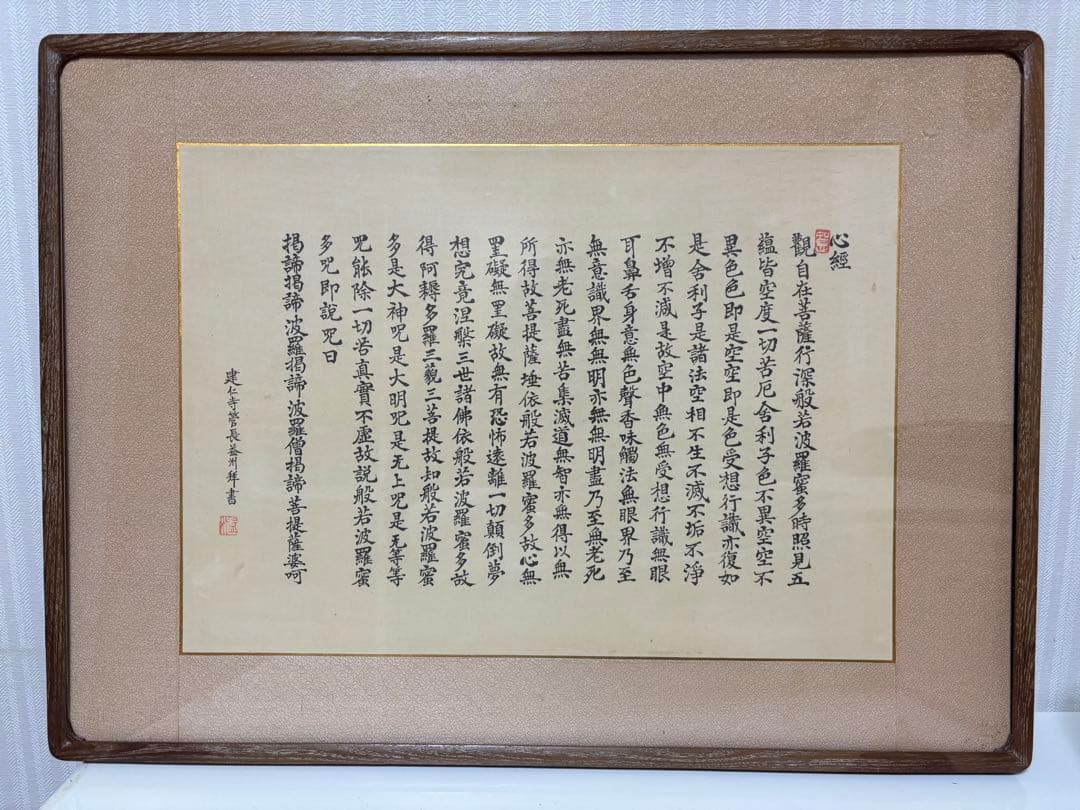 心經
觀自在菩薩行深般若波羅蜜多時照見五
蘊皆空度一切苦厄舍利子色不異空空不
異色色即是空空即是色受想行識亦復如
是舍利子是諸法空相不生不滅不垢不淨
不增不減是故空中無色無受想行識無眼
耳鼻舌身意無色聲香味觸法無眼界乃至
無意識界無無明亦無無明盡乃至無老死
亦無老死盡無苦集滅道無智亦無得以無
所得故菩提薩埵依般若波羅蜜多故心無
罣礙無罣礙故無有恐怖遠離一切顛倒夢
想究竟涅槃三世諸佛依般若波羅蜜多故
得阿耨多羅三藐三菩提故知般若波羅蜜
多是大神呪是大明呪是无上呪是无等等
呪能除一切苦真實不虛故說般若波羅蜜
多呪即說呪曰
揭諦揭諦波羅揭諦波羅僧揭諦菩提薩婆呵
建仁寺管長益州拜書